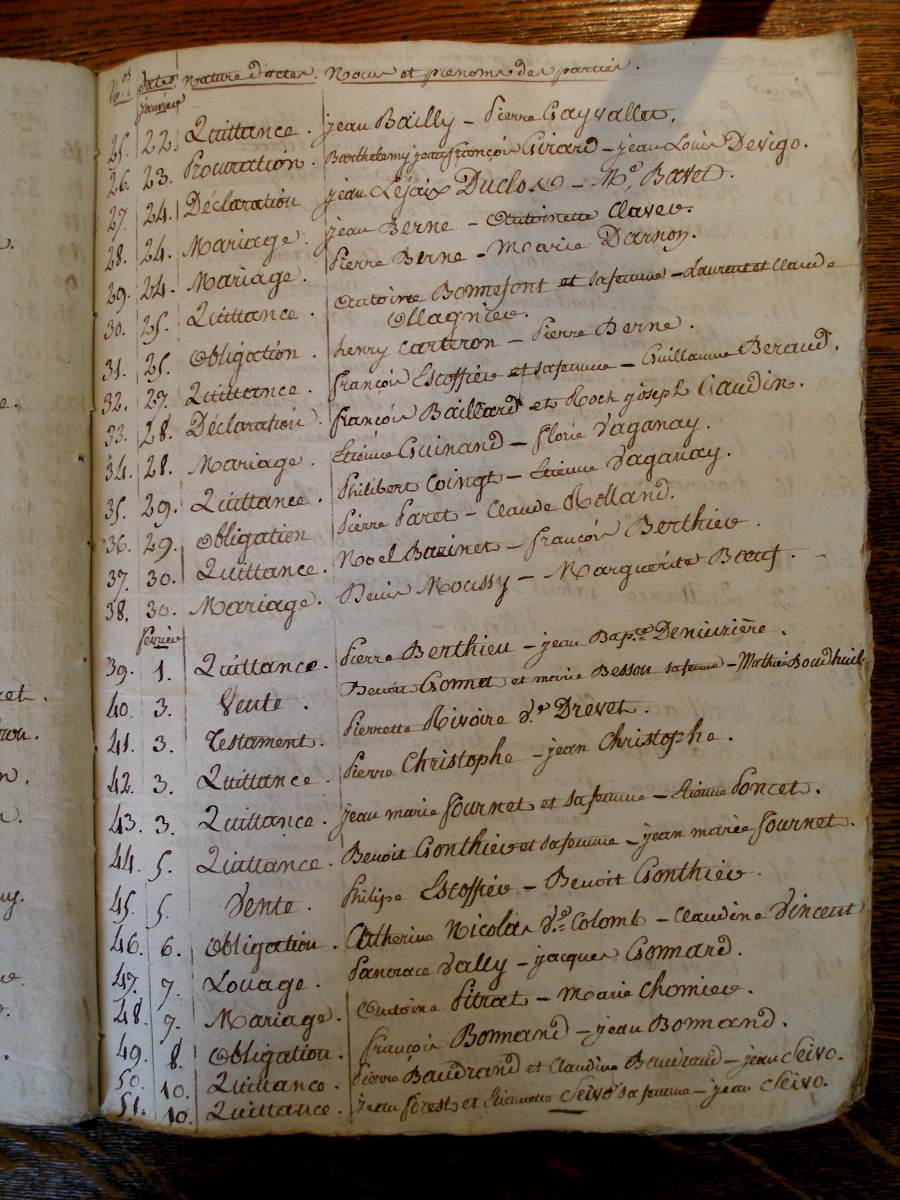 N.os dates. Nature d'actes. Noms et prenoms des parties.
janvier
25. 22. Quittance. jean Bailly – Pierre Gayvallet.
26. 23. Procuration. Barthelemy jean françois Girard – jean Louis Devigo.
27. 24. Déclaration jean Lejaix Duclos – M.e Bavet.
28. 24. Mariage. jean Berne – Antoinette Clavev.
29. 24. Mariage. Pierre Berne – Marie Darnon.
30. 25. Quittance. Antoine Bonnefont et sa femme – Laurent et Claude
Magniev.
31. 25. Obligation. henry Carteron – Pierre Berne.
32. 27. Quittance. françois Escoffiev et sa femme – Guillaume Beraud.
33. 28. Déclaration. françois Baillard et Roch joseph Gaudin.
34. 28. Mariage. Etienne Guinand – florie Vaganay.
35. 29. Quittance. Philibert Coingt – Etienne Vaganay.
36. 29. Obligation Pierre Paret – Claude Rolland.
37. 30. Quittance. Noel Bazinet – françois Berthiev.
38. 30. Mariage. Denis Moussy – Marguerite Bœuf.
fevrier
39. 1. Quittance. Pierre Berthieu – jean Bap.te Denuzière.
40. 3. Vente. Benoit Gonnet et marie Besson sa femme – Mathieu
41. 3. Testament. Pierrette Rivoire V.e Drevet.
42. 3. Quittance. Pierre Christophe – jean Christophe.
43. 3. Quittance. jean marie fournet et sa femme – Etienne Poncet.
44. 5. Quittance. Benoit Gonthiev et sa femme – jean marie fournet.
45. 5. Vente. Philipe Escoffiev – Benoit Gonthiev.
46. 6. Obligation. Catherine Nicolas V.e Colomb – Claudine Vincent
47. 7. Louage. Pancrace Vally – jacques Gonnard.
48. 7. Mariage. Antoine Pitrat – Marie Chomiev.
49. 8. Obligation. françois Bonnand – jean Bonnand.
50. 10. Quittance. Pierre Baudrand et Claudine Baudrand – jean Seivo.
51. 10. Quittance. jean forest et Etiennette Seivo sa femme – jean Seivo.